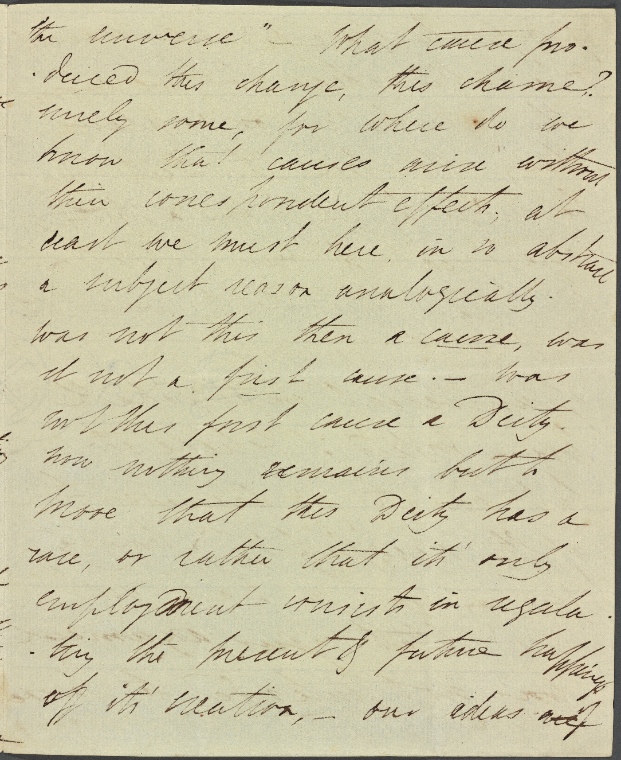 the universe" — What cause pro-
-duced this change, this chance?
surely some, for where do we
know that causes arise without
their correspondent effects; at
least we must here, in so abstract
a subject reason analogically.
was not this then a cause, was
it not a first cause. — was
not this first cause a Deity
now nothing remains but to
prove that this Deity has a
care, or rather that its' only
employment consists in regula-
-ting the present & future happiness
of its' creation, — our ideas